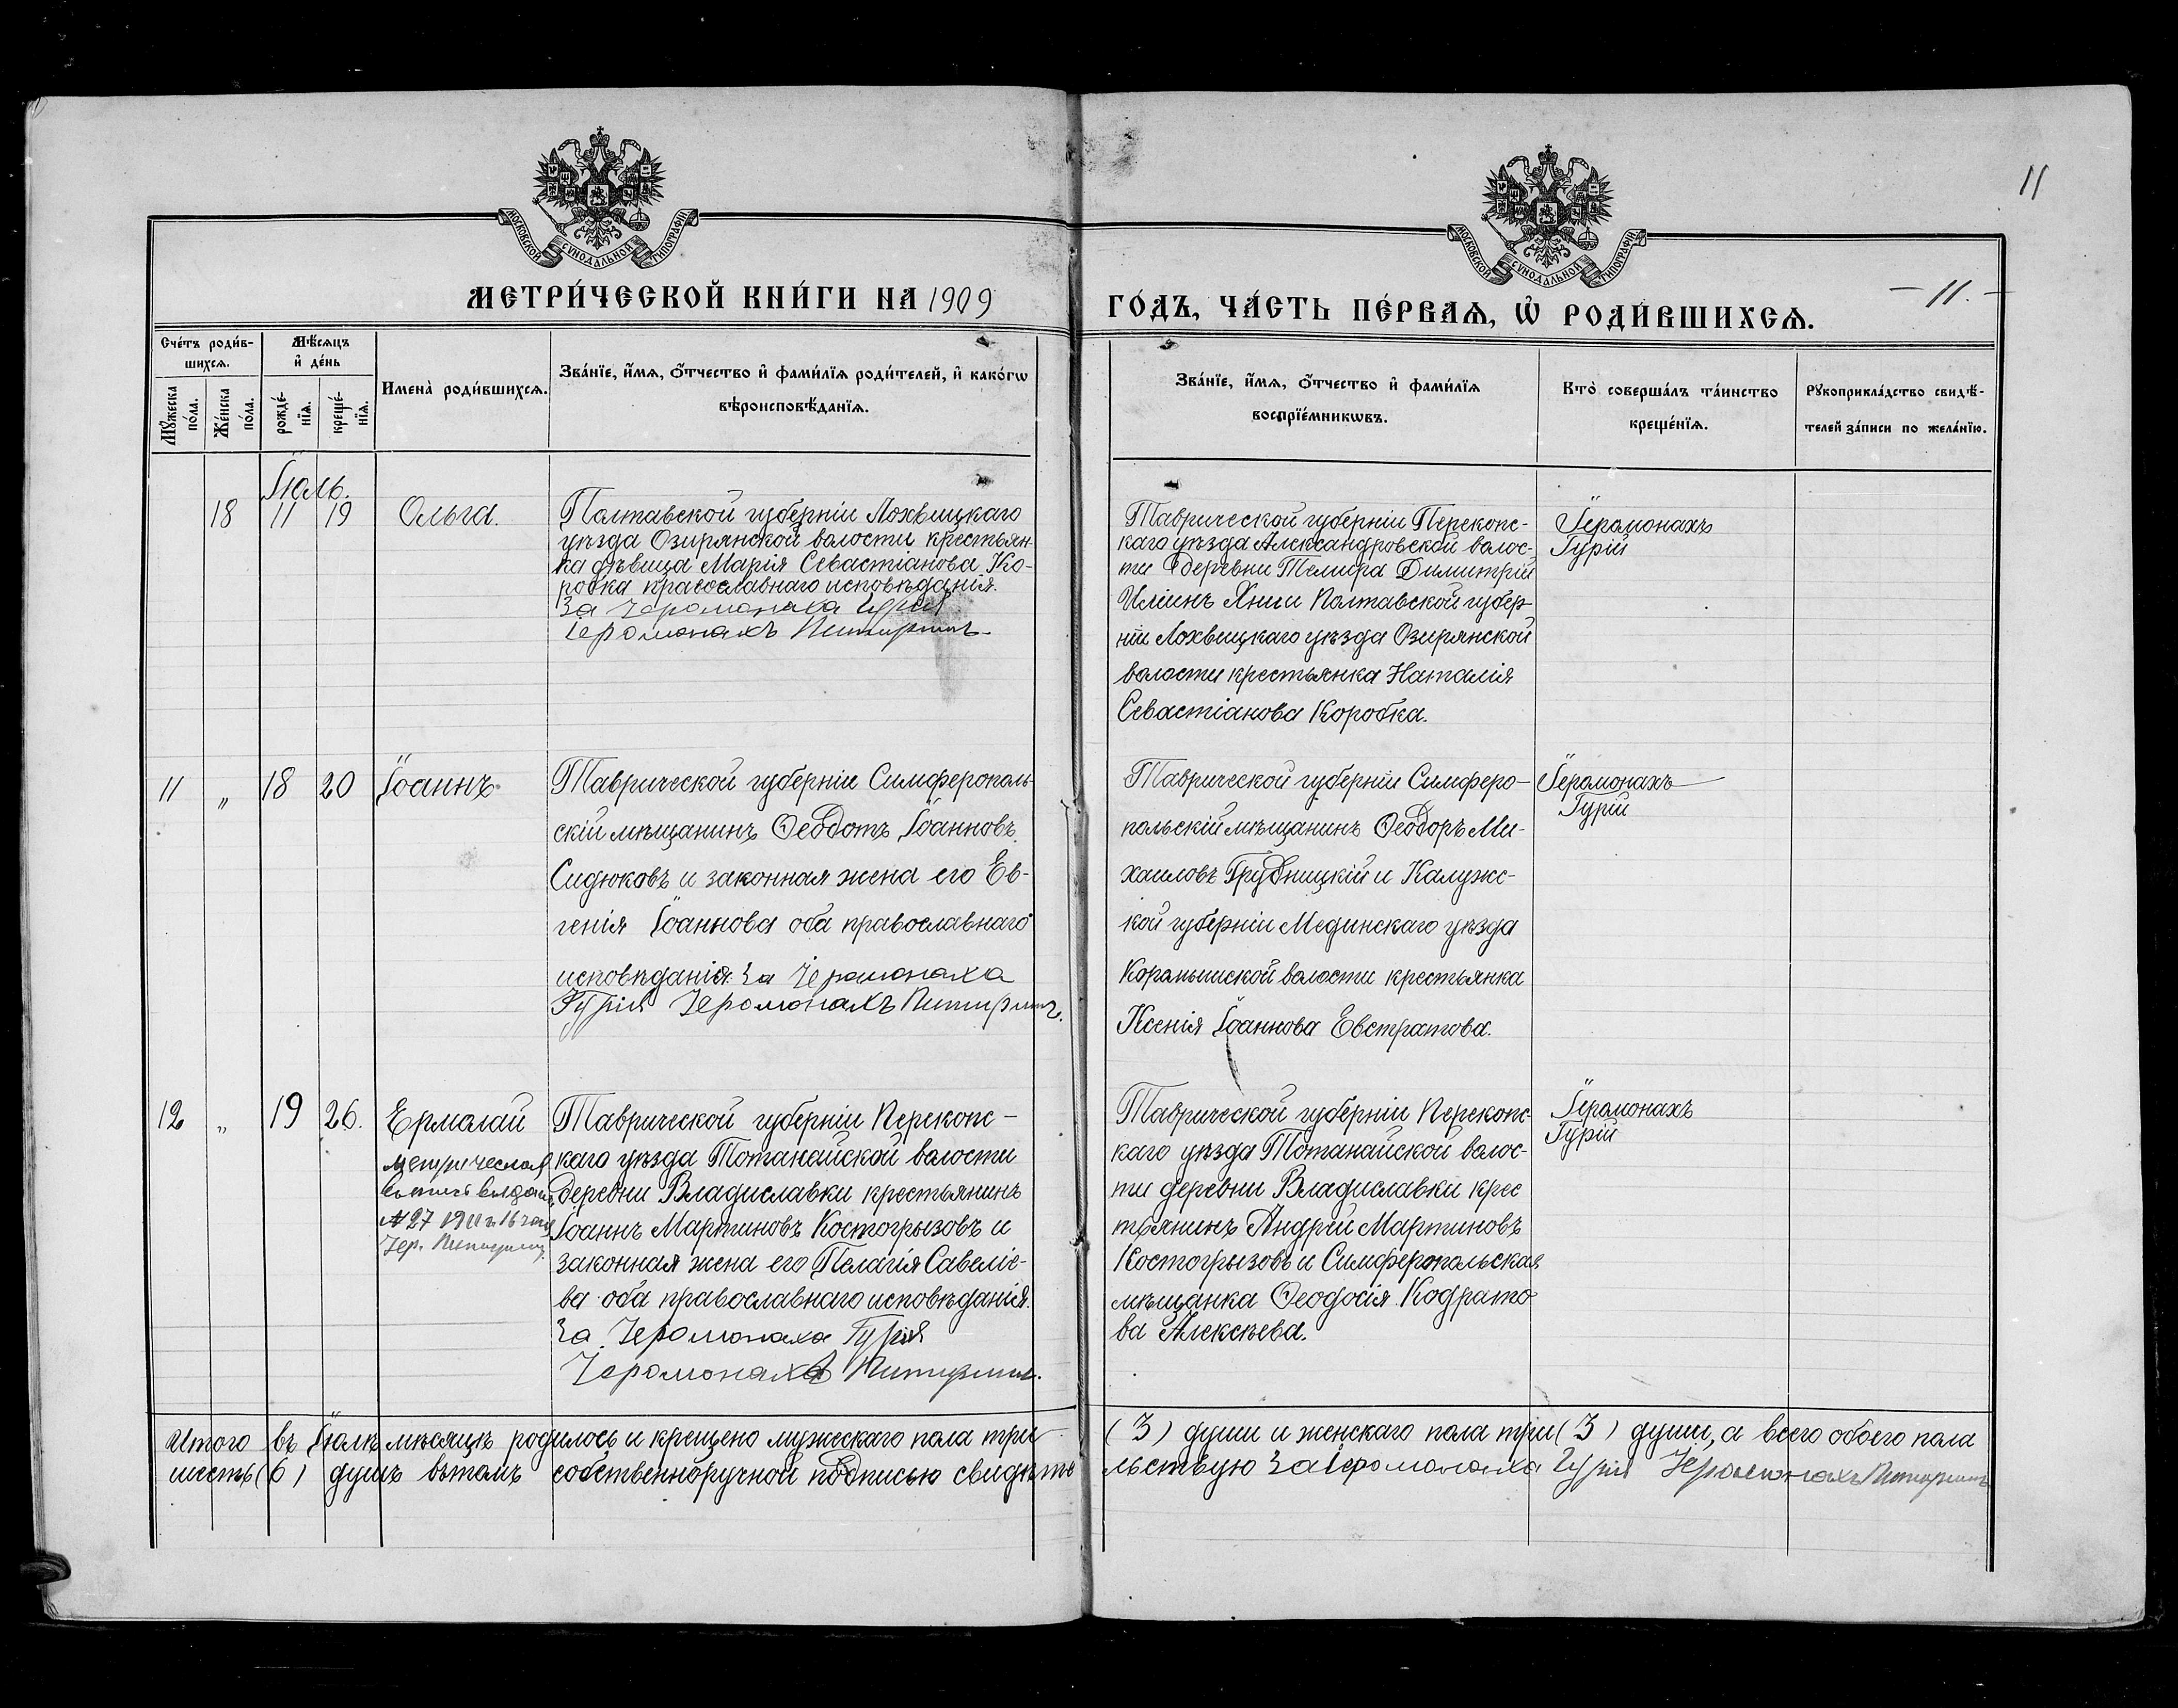 11
МОСКОВСКОЙ СѴНОДАЛЬНОЙ ТИПОГРАФІИ
МОСКОВСКОЙ СѴНОДАЛЬНОЙ ТИПОГРАФІИ
МЕТРИ́ЧЕСКОЙ КНИ́ГИ НА 1909
ГО́ДЪ, ЧА́СТЬ ПЕ́РВАѦ, Ѡ҆ РОДИ́ВШИХСѦ.
– 11. –
Сче́тъ роди́в-
шихсѧ.
Мꙋ́жеска
по́ла.
Же́нска
по́ла.
Мѣ́сѧцъ
и҆ де́нь
рожде́-
нїѧ.
креще́-
нїѧ.
Имена̀ роди́вшихсѧ.
Зва́нїе, и҆́мѧ, ѻ҆́тчество и҆ фами́лїѧ роди́телей, и҆ како́гѡ
вѣроисповѣ́данїѧ.
Зва́нїе, и҆́мѧ, ѻ҆́тчество и҆ фами́лїѧ
воспрїе́мникѡвъ.
Кто̀ соверша́лъ та́инство
креще́нїѧ.
Рꙋкоприкла́дство свидѣ́-
телей за́писи по жела́нїю.
Іюль.
18 11 19 Ольга.
Полтавской губерніи Лохвицкаго
уѣзда Озирянской волости крестьян-
ка дѣвица Марія Севастіанова Ко-
робка православнаго исповѣданія.
За Іеромонаха Гурія
Іеромонахъ Питиримъ.
Таврической губерніи Перекопс-
каго уѣзда Александровской волос-
ти деревни Димитрій
Иліинъ Полтавской губер-
ніи Лохвицкаго уѣзда Озирянской
волости крестьянка Наталія
Севастіанова Коробка.
Іеромонахъ
Гурій
11 „ 18 20 Іоаннъ.
Таврической губерніи Симферополь-
скій мѣщанинъ Ѳеодотъ Іоанновъ
Сидюковъ и законная жена его Ев-
генія Іоаннова оба православнаго
исповѣданія. За Іеромонаха
Гурія Іеромонахъ Питиримъ.
Таврической губерніи Симферо-
польскій мѣщанинъ Ѳеодоръ Ми-
хаиловъ Грудницкій и Калужс-
кой губерніи Мединскаго уѣзда
волости крестьянка
Ксенія Іоаннова Евстратова.
Іеромонахъ
Гурій
12 „ 19 26. Ермолай
Метрическая
выпись выдана
№ 27 1911 г. 16
Іер. Питиримъ
Таврической губерніи Перекопс-
каго уѣзда Тотанайской волости
деревни Владиславки крестьянинъ
Іоаннъ Мартиновъ Костогрызовъ и
законная жена его Пелагія Савеліе-
ва оба православнаго исповѣданія.
За Іеромонаха Гурія
Іеромонахъ Питиримъ.
Таврической губерніи Перекопс-
каго уѣзда Тотанайской волос-
ти деревни Владиславки крес
тьянинъ Андрей Мартиновъ
Костогрызовъ и Симферопольская
мѣщанка Ѳеодосія Кодрато-
ва Алексѣева.
Іеромонахъ
Гурій
Итого въ Іюлѣ мѣсяцѣ родилось и крещено мужескаго пола три
(3) души и женскаго пола три (3) души, а всего обоего пола
шесть (6) душъ вътомъ собственноручной подписью свидѣте
льствую За Іеромонаха Гурія Іеромонахъ Питиримъ